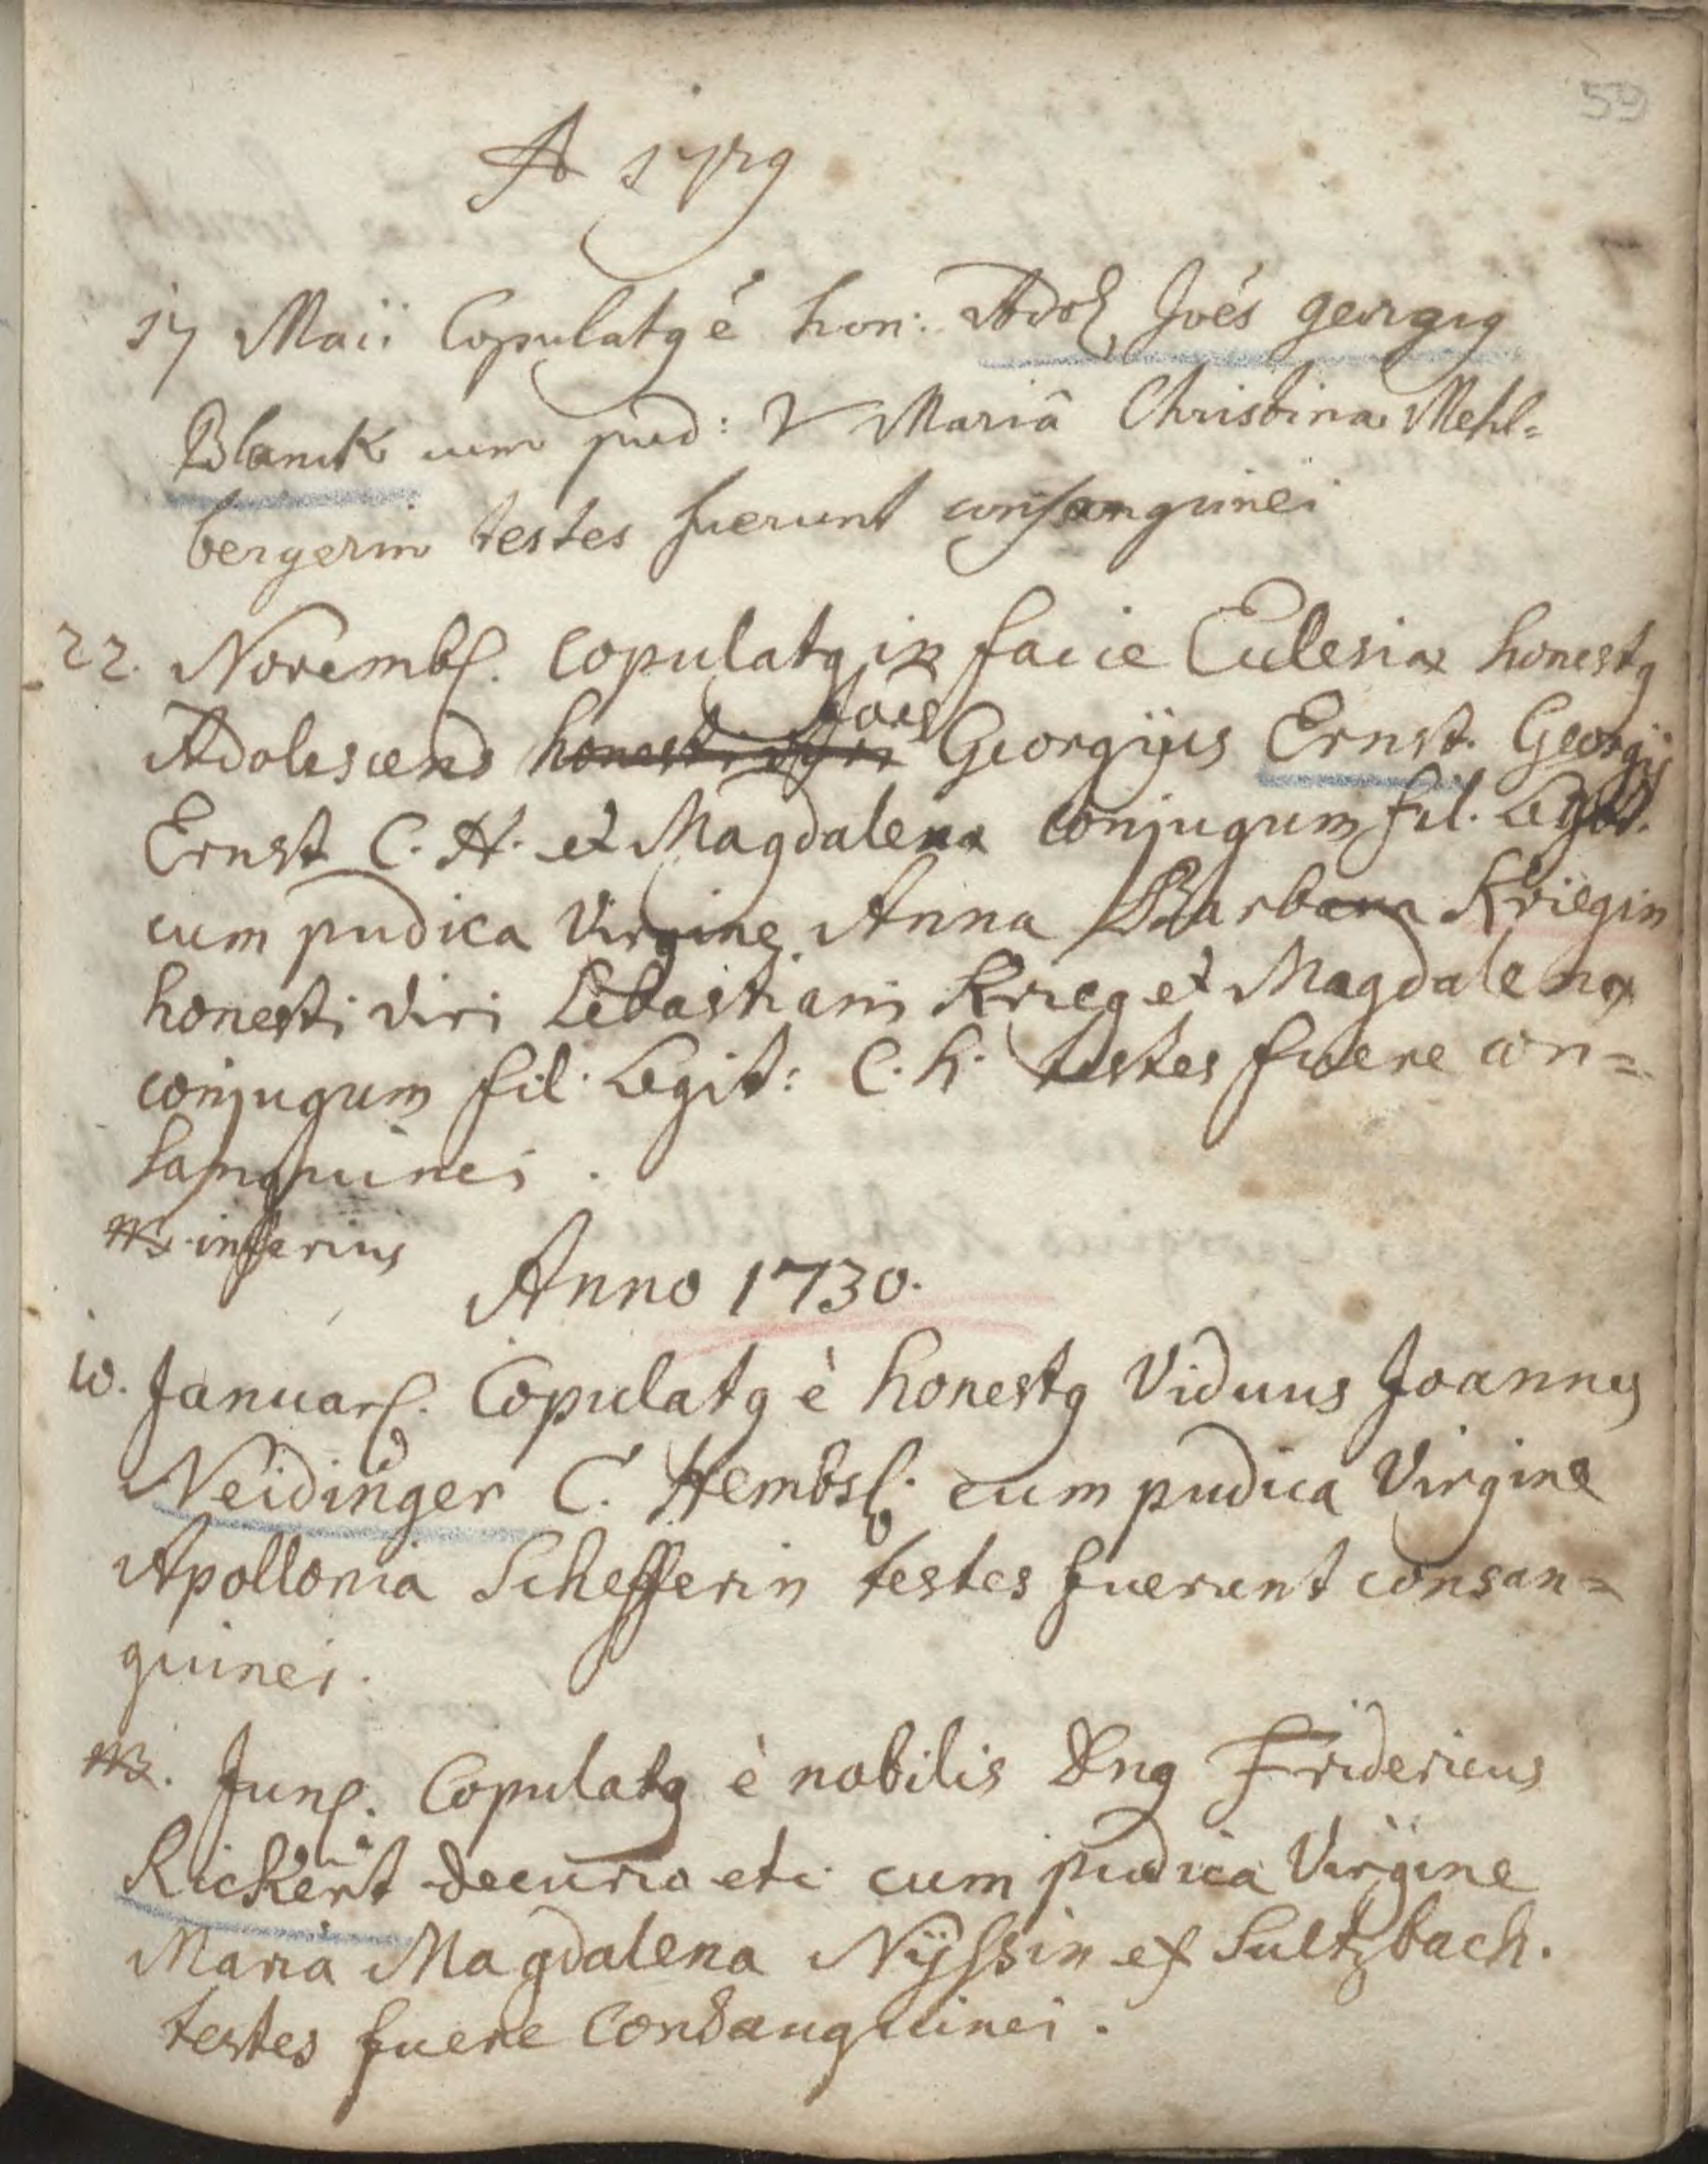 59
A 1729
17 Maii Copulatq é hon: Adol Joés georgiq
Blanck cum pud: V Mariâ Christina Mehl=
bergerin testes fuerunt consanguinei
22. Novemb. copulatq in facie Ecclesiae honestq
Adolescens honesti Joẽs Georgijus Ernst. Georgij
Ernst C. H. et Magdalena conjugum fil. Legit.
cum pudica Virgine Anna Barbara Kriegin
honesti viri Sebastiani Krieg et Magdalenae
conjugum fil. Legit: C. h. testes fuere con=
sanguinei.
NB. inferius
Anno 1730.
10. Januar. Copulatq è honestq Viduus Joannes
Neidinger C. Hembs. cum pudica Virgine
Apollonia Schefferin testes fuerunt consan=
guinei.
NB. Jun. Copulatq è nobilis Dnq Fridericus
Rickert decurio etc cum pudica Virgine
Maria Magdalena Nijssin ex Sultzbach.
testes fuere Consanguinei.